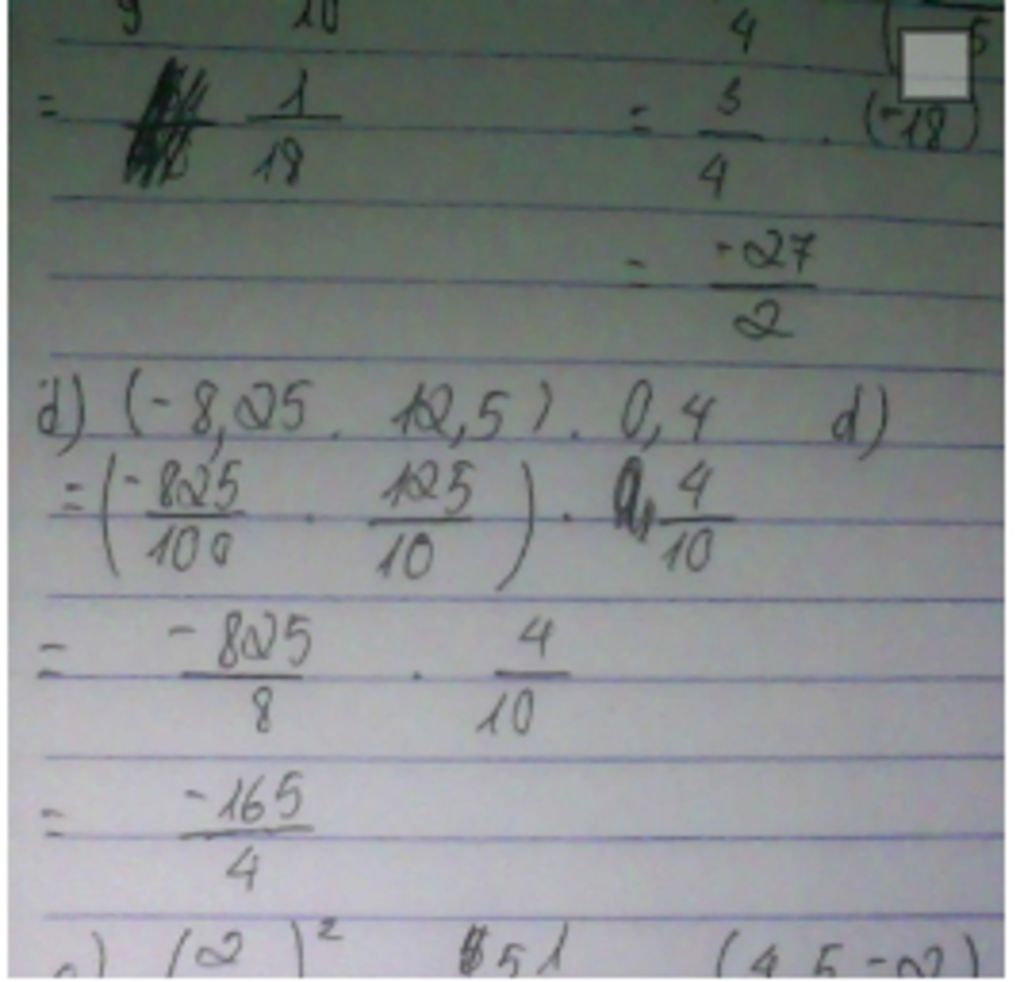 9 10 4 5
= 1/18 = 3/4 . (-18)
= -27/2
d) (-8,25 . 12,5) . 0,4 d)
= (-825/100 . 125/10) . 4/10
= -825/8 . 4/10
= -165/4
(2 )² 51 (4,5-2)